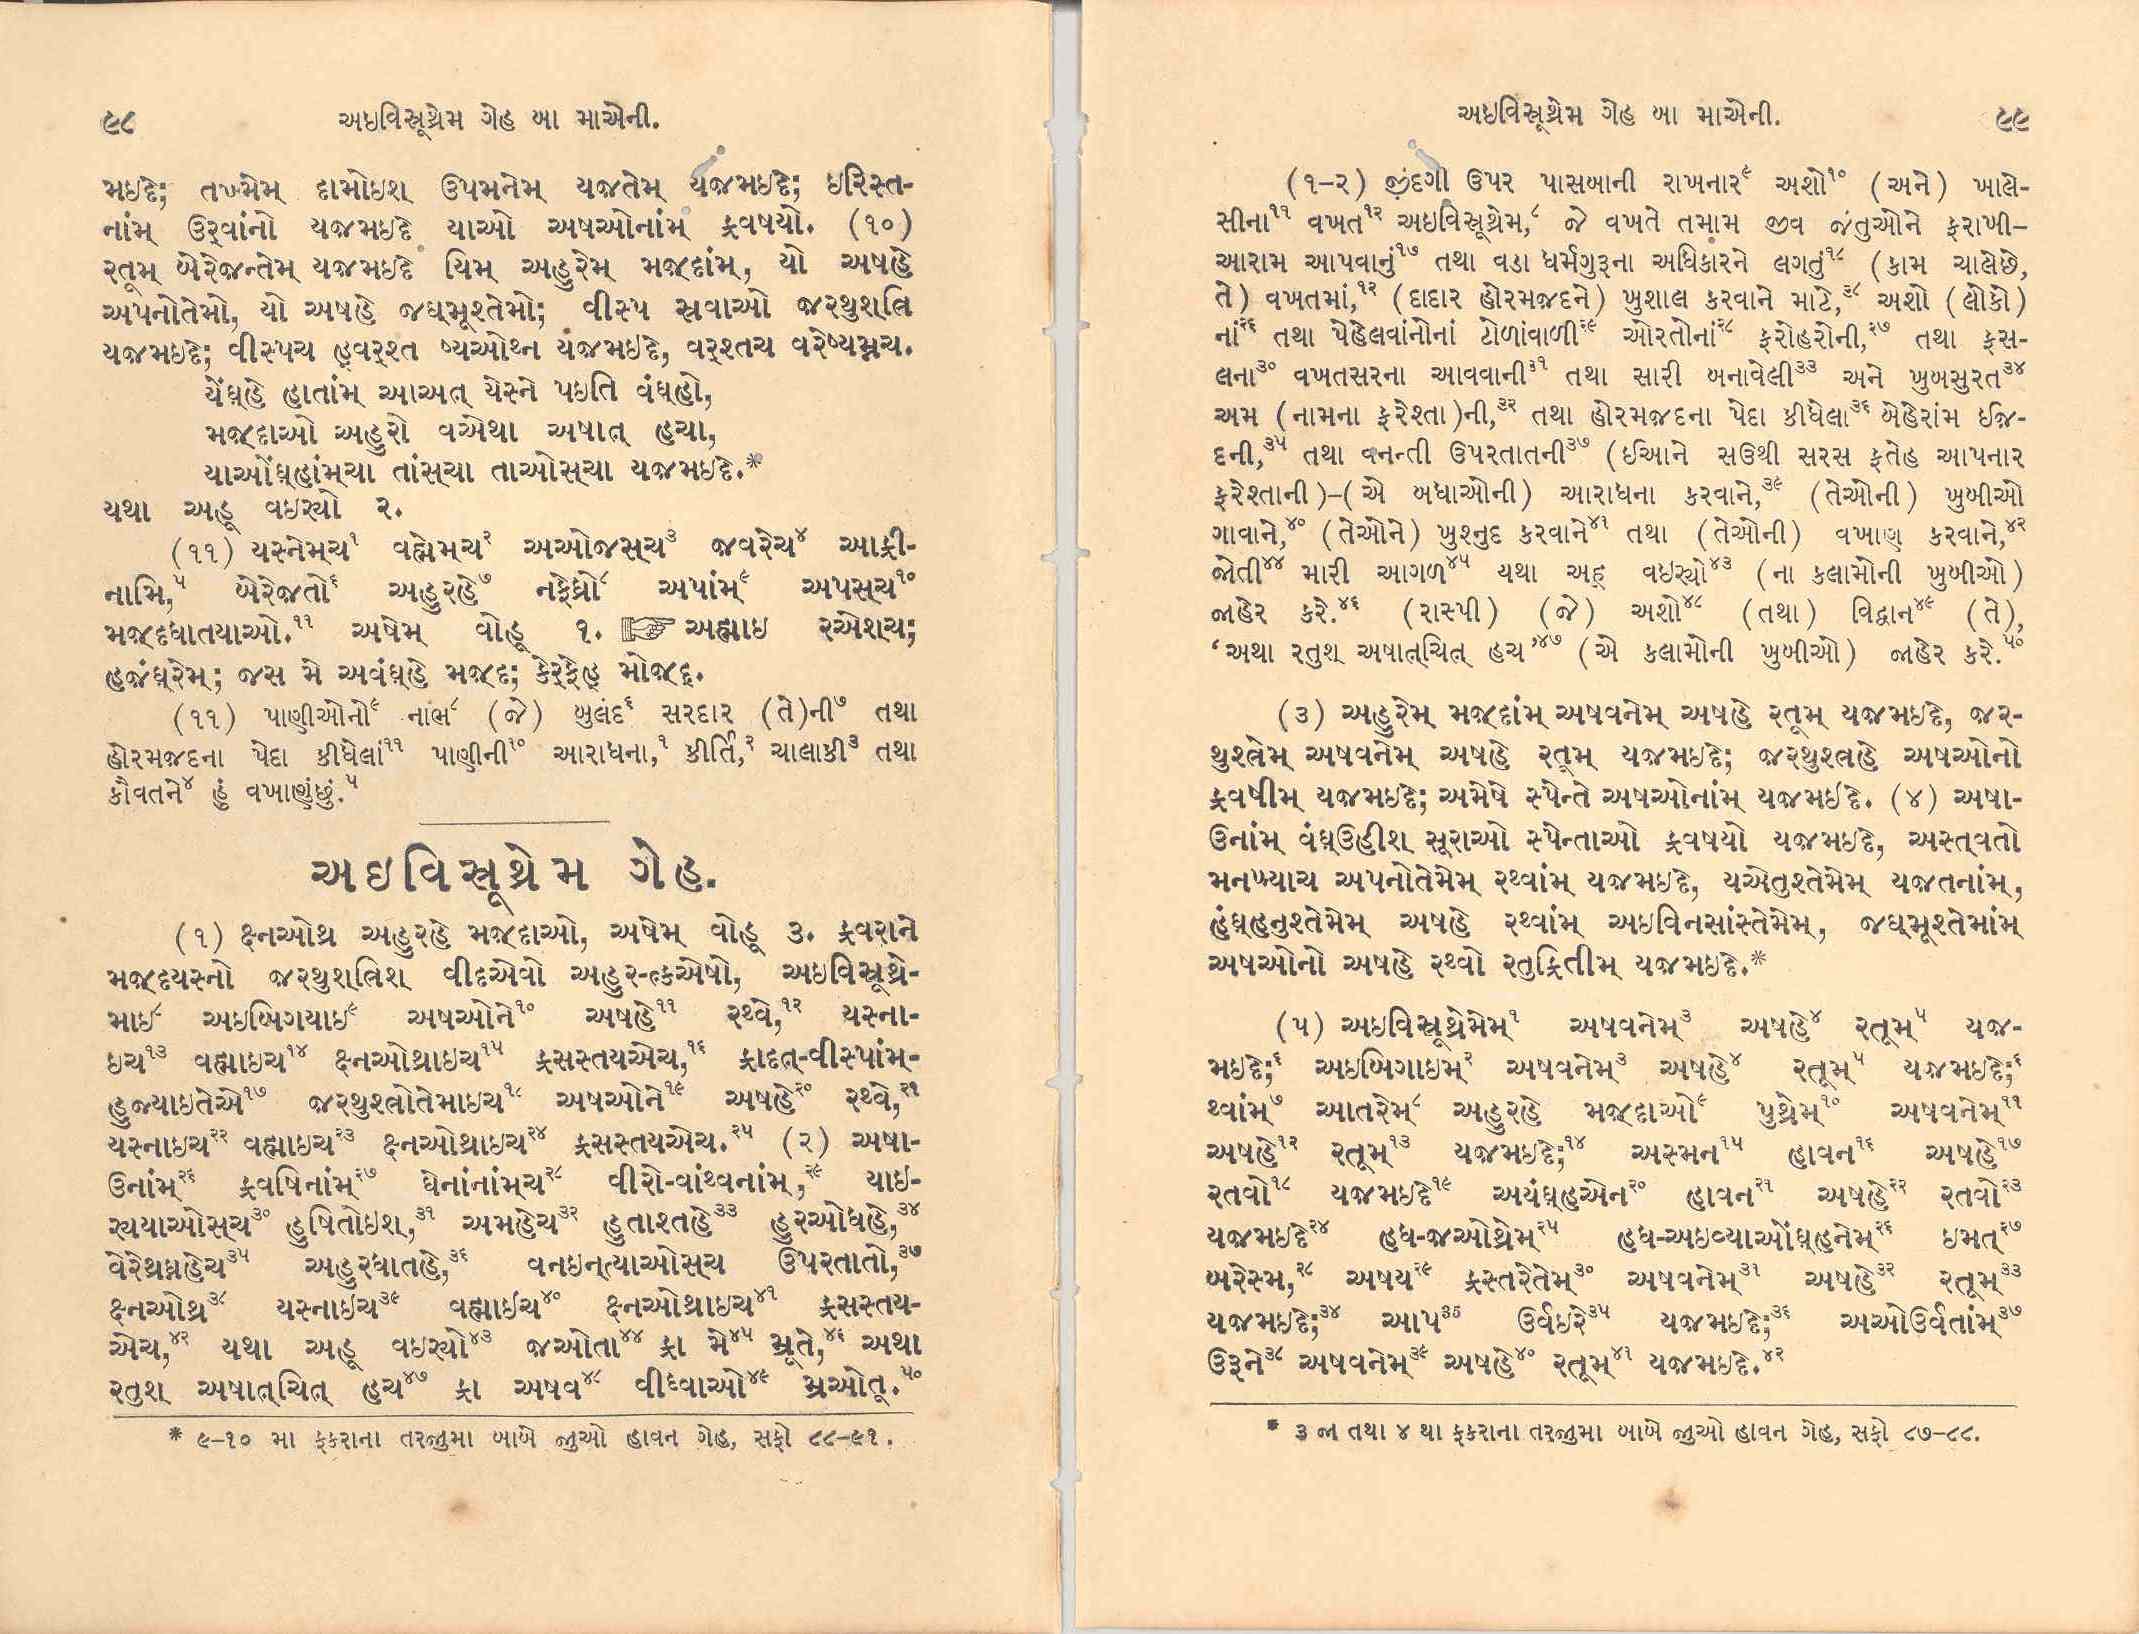 ૯૮ અઇવિસ્રૂથ્રેમ ગેહ બા માએની.
મઇદે; તખ્મેમ્ દામોઇશ્ ઉપમનેમ્ યજતેમ્ યજમઇદે; ઇરિસ્ત-
નાંમ્ ઉર્‌વાંનો યજમઇદે યાઓ અષઓનાંમ્ ફ્રવષયો. (૧૦)
રતૂમ્ બેરેજન્તેમ્ યજમઇદે યિમ્ અહુરેમ્ મજ઼્દાંમ્, યો અષહે
અપનોતેમો, યો અષહે જઘ્મૂશ્તેમો; વીસ્પ સ્રવાઓ જરથુશ્ત્રિ
યજમઇદે; વીસ્પચ હ્વર્‌શ્ત ષ્યઓથ્ન યજમઇદે, વર્‌શ્તચ વરેષ્યમ્નચ.
યેંઘ્હે હાતાંમ્ આઅત્ યેસ્ને પઇતિ વંઘ્હો,
મજ઼્દાઓ અહુરો વએથા અષાત્ હચા,
યાઓંઘ્હાંમ્‌ચા તાંસ્‌ચા તાઓસ્‌ચા યજમઇદે.*
યથા અહૂ વઇર્યો ૨.
(૧૧) યસ્નેમ્‌ચ૧ વહ્મેમ્‌ચ૨ અઓજસ્‌ચ૩ જવરેચ૪ આફ્રી-
નામિ,૫ બેરેજતો૬ અહુરહે૭ નફેધ્રો૮ અપાંમ્૯ અપસ્‌ચ૧૦
મજ઼્દધાતયાઓ.૧૧ અષેમ્ વોહૂ ૧. ☞ અહ્માઇ રએશ્ચ;
હજંઘ્રેમ્; જસ મે અવંઘ્હે મજ઼્દ; કેર્‌ફેહ્ મોજ઼્દ.
(૧૧) પાણીઓનો૯ નાભ૮ (જે) બુલંદ૬ સરદાર (તે)ની૭ તથા
હોરમજદના પેદા કીધેલાં૧૧ પાણીની૧૦ આરાધના,૧ કીર્તિ,૨ ચાલાકી૩ તથા
કૌવતને૪ હું વખાણુંછું.૫
અઇવિસ્રૂથ્રેમ ગેહ.
(૧) ક્ષ્નઓથ્ર અહુરહે મજ઼્દાઓ, અષેમ્ વોહૂ ૩. ફ્રવરાને
મજ઼્દયસ્નો જરથુશ્ત્રિશ્ વીદએવો અહુર-ત્કએષો, અઇવિસ્રૂથ્રે-
માઇ૮ અઇબિગયાઇ૯ અષઓને૧૦ અષહે૧૧ રથ્વે,૧૨ યસ્ના-
ઇચ૧૩ વહ્માઇચ૧૪ ક્ષ્નઓથ્રાઇચ૧૫ ફ્રસસ્તયએચ,૧૬ ફ્રાદત્-વીસ્પાંમ્-
હુજ્યાઇતેએ૧૭ જરથુશ્ત્રોતેમાઇચ૧૮ અષઓને૧૯ અષહે૨૦ રથ્વે,૨૧
યસ્નાઇચ૨૨ વહ્માઇચ૨૩ ક્ષ્નઓથ્રાઇચ૨૪ ફ્રસસ્તયએચ.૨૫ (૨) અષા-
ઉનાંમ્૨૬ ફ્રવષિનાંમ્૨૭ ઘેનાંનાંમ્‌ચ૨૮ વીરો-વાંથ્વનાંમ્,૨૯ યાઇ-
ર્યયાઓસ્‌ચ૩૦ હુષિતોઇશ્,૩૧ અમહેચ૩૨ હુતાશ્તહે૩૩ હુરઓધહે,૩૪
વેરેથ્રઘ્નહેચ૩૫ અહુરધાતહે,૩૬ વનઇન્ત્યાઓસ્‌ચ ઉપરતાતો,૩૭
ક્ષ્નઓથ્ર૩૮ યસ્નાઇચ૩૯ વહ્માઇચ૪૦ ક્ષ્નઓથ્રાઇચ૪૧ ફ્રસસ્તય-
એચ,૪૨ યથા અહૂ વઇર્યો૪૩ જઓતા૪૪ ફ્રા મે૪૫ મ્રૂતે,૪૬ અથા
રતુશ્ અષાત્‌ચિત્ હચ૪૭ ફ્રા અષવ૪૮ વીધ્વાઓ૪૯ મ્રઓતૂ.૫૦
* ૯-૧૦ મા ફકરાના તરજુમા બાબે જુઓ હાવન ગેહ, સફો ૮૮-૯૧.
અઇવિસ્રૂથ્રેમ ગેહ બા માએની. ૯૯
(૧-૨) જીંદગી ઉપર પાસબાની રાખનાર૯ અશો૧૦ (અને) ખાલે-
સીના૧૧ વખત૧૨ અઇવિસ્રૂથ્રેમ,૮ જે વખતે તમામ જીવ જંતુઓને ફરાખી-
આરામ આપવાનું૧૭ તથા વડા ધર્મગુરૂના અધિકારને લગતું૧૮ (કામ ચાલેછે,
તે) વખતમાં,૧૨ (દાદાર હોરમજદને) ખુશાલ કરવાને માટે,૩૮ અશો (લોકો)
નાં૨૬ તથા પેહેલવાંનોનાં ટોળાંવાળી૨૯ ઓરતોનાં૨૮ ફરોહરોની,૨૭ તથા ફસ-
લના૩૦ વખતસરના આવવાની૩૧ તથા સારી બનાવેલી૩૩ અને ખુબસુરત૩૪
અમ (નામના ફરેશ્તા)ની,૩૨ તથા હોરમજદના પેદા કીધેલા૩૬ બેહેરાંમ ઈજ-
દની,૩૫ તથા વનન્તી ઉપરતાતની૩૭ (ઈઆને સઉથી સરસ ફતેહ આપનાર
ફરેશ્તાની)-(એ બધાઓની) આરાધના કરવાને,૩૯ (તેઓની) ખુબીઓ
ગાવાને,૪૦ (તેઓને) ખુશ્નુદ કરવાને૪૧ તથા (તેઓની) વખાણ કરવાને,૪૨
જોતી૪૪ મારી આગળ૪૫ યથા અહૂ વઇર્યો૪૩ (ના કલામોની ખુબીઓ)
જાહેર કરે.૪૬ (રાસ્પી) (જે) અશો૪૮ (તથા) વિદ્વાન૪૯ (તે),
‘અથા રતુશ્ અષાત્‌ચિત્ હચ’૪૭ (એ કલામોની ખુબીઓ) જાહેર કરે.૫૦
(૩) અહુરેમ્ મજ઼્દાંમ્ અષવનેમ્ અષહે રતૂમ્ યજમઇદે, જર-
થુશ્ત્રેમ્ અષવનેમ્ અષહે રતૂમ્ યજમઇદે; જરથુશ્ત્રહે અષઓનો
ફ્રવષીમ્ યજમઇદે; અમેષે સ્પેન્તે અષઓનાંમ્ યજમઇદે. (૪) અષા-
ઉનાંમ્ વંઘ્ઉહીશ્ સૂરાઓ સ્પેન્તાઓ ફ્રવષયો યજમઇદે, અસ્ત્વતો
મનષ્યાચ અપનોતેમેમ્ રથ્વાંમ્ યજમઇદે, યએતુશ્તેમેમ્ યજતનાંમ્,
હંઘ્હનુશ્તેમેમ્ અષહે રથ્વાંમ્ અઇવિનસાંસ્તેમેમ્, જઘ્મૂશ્તેમાંમ્
અષઓનો અષહે રથ્વો રતુફ્રિતીમ્ યજમઇદે.*
(૫) અઇવિસ્રૂથ્રેમેમ્૧ અષવનેમ્૩ અષહે૪ રતૂમ્૫ યજ-
મઇદે;૬ અઇબિગાઇમ્૨ અષવનેમ્૩ અષહે૪ રતૂમ્૫ યજમઇદે;૬
થ્વાંમ્૭ આતરેમ્૮ અહુરહે મજ઼્દાઓ૯ પુથ્રેમ્૧૦ અષવનેમ્૧૧
અષહે૧૨ રતૂમ્૧૩ યજમઇદે;૧૪ અસ્મન૧૫ હાવન૧૬ અષહે૧૭
રતવો૧૮ યજમઇદે૧૯ અયંઘ્હએન૨૦ હાવન૨૧ અષહે૨૨ રતવો૨૩
યજમઇદે૨૪ હધ-જઓથ્રેમ્૨૫ હધ-અઇવ્યાઓંઘ્હનેમ્૨૬ ઇમત્૨૭
બરેસ્મ,૨૮ અષય૨૯ ફ્રસ્તરેતેમ્૩૦ અષવનેમ્૩૧ અષહે૩૨ રતૂમ્૩૩
યજમઇદે;૩૪ આપ૩૫ ઉર્વઇરે૩૫ યજમઇદે;૩૬ અઓઉર્વતાંમ્૩૭
ઉરૂને૩૮ અષવનેમ્૩૯ અષહે૪૦ રતૂમ્૪૧ યજમઇદે.૪૨
* ૩ જા તથા ૪ થા ફકરાના તરજુમા બાબે જુઓ હાવન ગેહ, સફો ૮૭-૮૮.